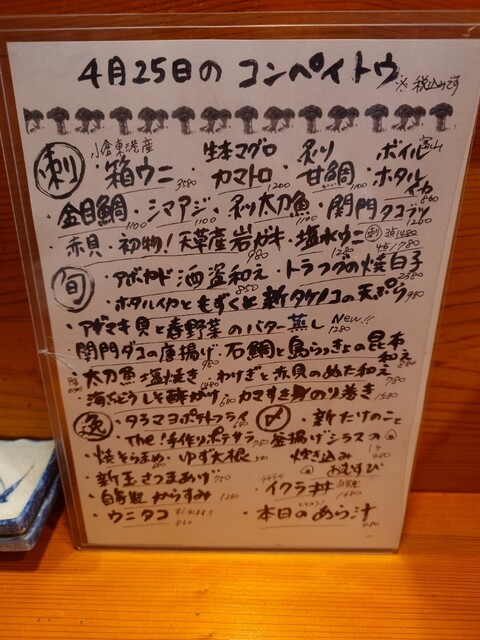 4月25日の コンペイトウ ※税込みです
刺 小倉東港産 箱ウニ 3580 ・生本マグロ カマトロ 1200 ・炙り 甘鯛 1100 ・ボイル 富山 ホタルイカ 860
・金目鯛 1100 ・シマアジ 1100 ・炙り太刀魚 1100 ・関門タコブツ 1260
・赤貝・初物!天草産岩ガキ・塩水ウニ 1280
旬 ・アボカド酒盗和え 850 ・トラフグの焼白子 2580
・ホタルイカともずくと新タケノコの天ぷら 980
・アゲマキ貝と春野菜のバター蒸し New!! 1280
・関門ダコの唐揚げ 980 ・石鯛と島らっきょの昆布和え 880
・太刀魚塩焼き 1480 ・わけぎと赤貝のぬた和え 780
・海ぶどうしそ酢がけ 680 ・カマすき身のり巻き 1580
逸 ・タラマヨポテトフライ 〆 ・新たけのこと
・The!手作りポテサラ 釜揚げシラスの
・焼そらまめ ・ゆず大根 炊き込み 480
・新玉さつまあげ 750 おむすび
・自家製からすみ 1380 ・イクラ丼
・ウニタコ ・本日のあら汁